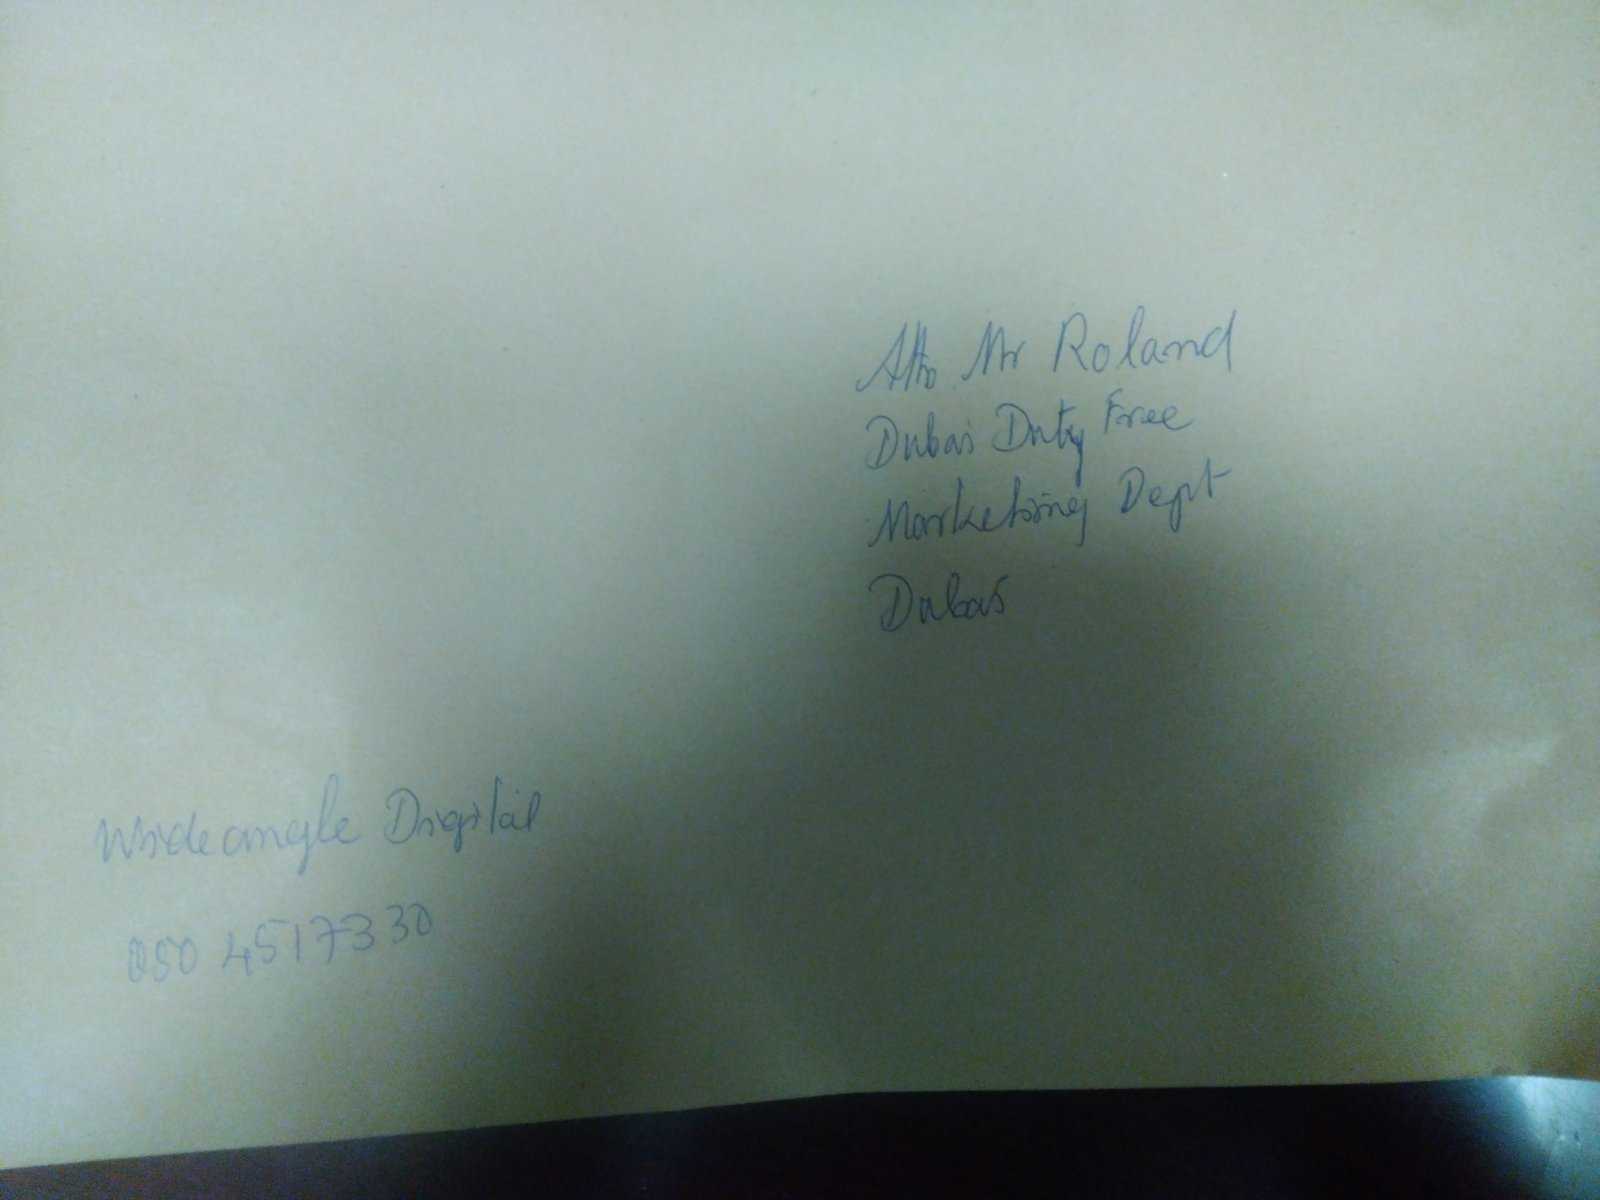 Attn Mr Roland
Dubai Duty Free
Marketing Dept
Dubai
Wideangle Digital
050 4517330